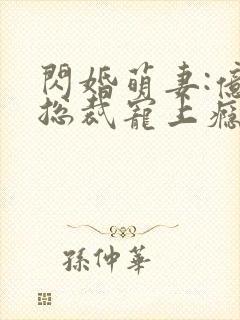 閃婚萌妻:億
總裁寵上癮
孫仲華